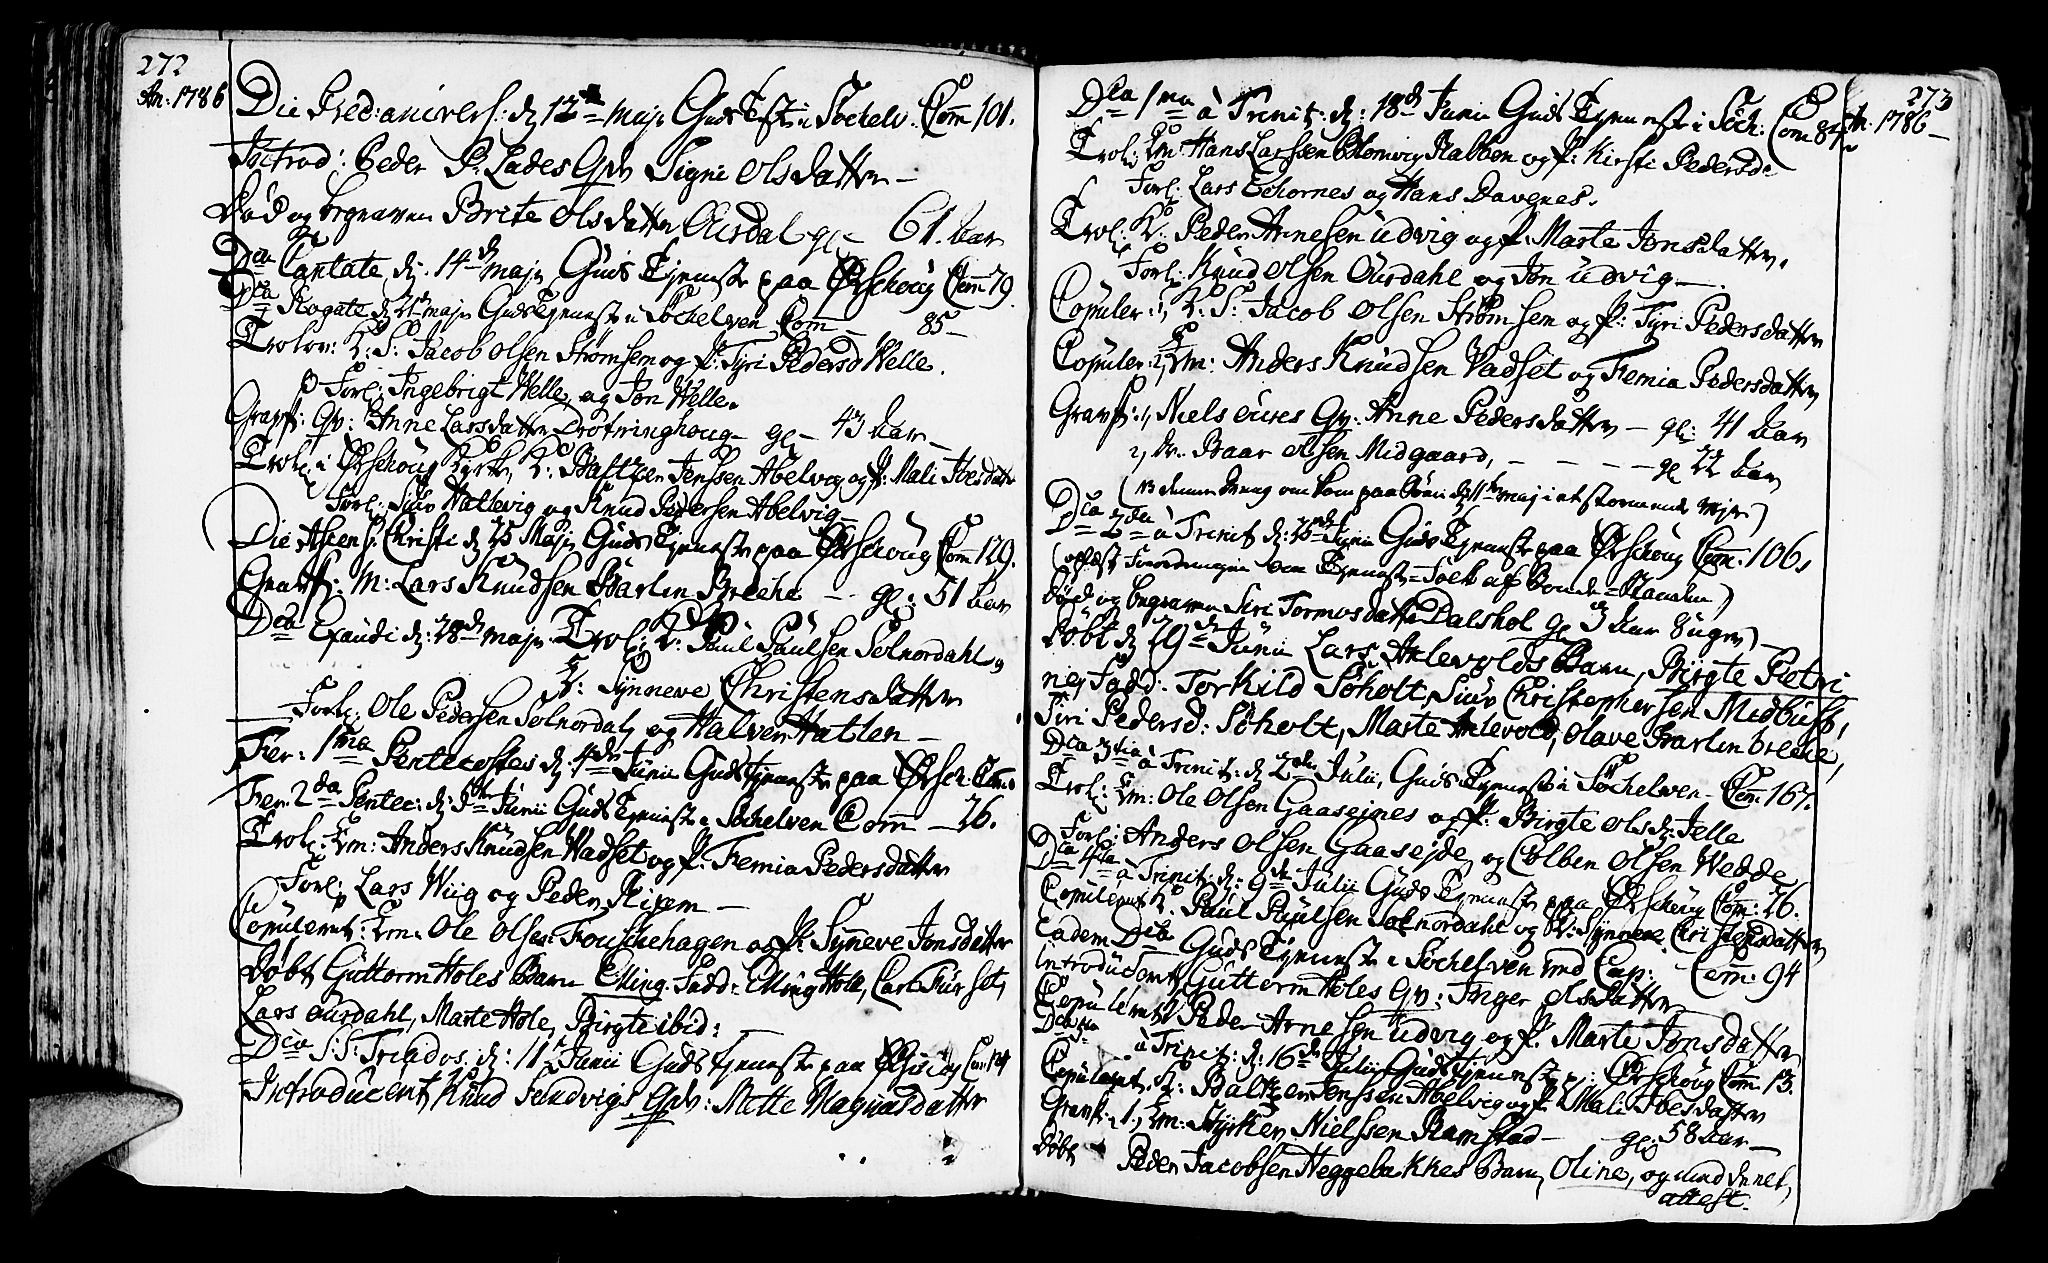 272
An: 1786
Die Præd: anivers: d: 12 te Maji Guds Tieneste i Søchelv. Com 101.
Introd: Peder P: Lades Qv: Signi Olsdatter —
Død og begraven Brite Olsdatter Aursdal gl — 61. Aar
Dca Cantate d: 14 de Maji Guds Tjeneste paa Ørschoug Com 79.
Dca Rogate d: 21 Maji Guds Tjeneste i Søchelven Com — 85 —
Trolov: K: S: Jacob Olsen Strømsem og P: Gyri Pedersd Welle.
Forl: Ingebrigt Welle, og Jon Welle.
Gravf: Qv: Anne Larsdatter Drotninghoug — gl — 43 Aar —
Trol: i Ørschoug Kirke, K: Baltzer Jenssen Abelvig og P: Mali Ibesdatter
Forl: Siur Hattevig og Knud Pedersen Abelvig —
Die Ascens: Christi d: 25 Maji Guds Tjeneste paa Ørschoug Com 129.
Gravf: M: Lars Knudsen Barlinbreche — gl: 51 Aar
Dca Exaudi d: 28 de Maji Trol: K: Paul Paulsen Solnordahl,
K: Synneve Christensdatter
Forl: Ole Pedersen Solnordal, og Halven Hatlen —
Fer: 1 ma Pentecostes d: 4 de Junii Guds Tjeneste paa Ørsch: Com:
Fer: 2 da Pentec: d: 5 te Junii Guds Tjeneste i Søchelven Com — 26.
Trol: Em: Anders Knudsen Vadset og P: Femia Pedersdatter
Forl: Lars Wiig og Peder Rigem —
Copulerent: Em. Ole Olsen Fouschehagen og P: Synneve Jonsdatter
Døbt Guttorm Holes Barn Elling. Fadd: Elling Hole, Carl Furset,
Lars Aursdahl, Marte Hole, Birgte ibid:
Dca S: S: Triados. d: 11 te Junii Guds Tjeneste paa
Introducent Knud Sendvigs Qv: Mette Magnusdatter
273
An: 1786 —
Dca 1 ma à Trinit: d: 18 de Junii Guds Tjeneste i Søch: Com 87.
Trol: Em: Hans Larssen Blomvig Rabben og P: Kirsti Pedersd:
Forl: Lars Echornes og Hans Davegnes.
Trol: K: Peder Arnesen Udvig og P: Marte Jonsdatter.
Forl: Knud Olsen Aursdahl og Jon Udvig —
Copuler: 1, K: S: Jacob Olsen Strømsem og P: Gyri Pedersdatter
Copuler: 2, Em: Anders Knudsen Vadset og Femia Pedersdatter
Gravf: 1, Niels Aures Qv: Anne Pedersdatter — gl: 41 Aar
2, Baar Olsen Midgaard, — — — — gl 22 Aar
(NB denne om kom paa d: 11 te Maji i et stormende Vejr)
Dca 2 da à Trinit d: 25 de Junii Guds Tjeneste paa Ørschoug Com: 106.
(oplæst Forordningen om Tjeneste=Folk af Bonde=Standen)
Død og begraven Siri Tormosdatter Dalshol gl 3 Aar 8 uger)
Døbt d: 29 de Junii Lars Anlevolds Barn, Birgte Pietri
ne, Fadd: Torkild Søholt, Siur Christophersen Midbust,
Siri Pedersd: Søholt, Marte Anlevold, Olave Barlinbreche,
Dca 3 tia à Trinit: d: 2 den Julii, Guds Tjeneste i Søchelven — Com: 167.
Trol: Em: Ole Olsen Gaasejnes og P: Birgte Olsd: Jelle
Forl: Anders Olsen Gaasejde, og Colben Olsen Wedde
Dca 4 ta à Trinit: d: 9 de Julii Guds Tjeneste paa Ørschoug Com: 26.
Copulerent K: Paul Paulsen Solnordahl og K: Synneve Christensdatter
Eadem Dca Guds Tjeneste i Søchelven Com: 94
Introducent Guttorm Holes Qv: Inger Olsdatter
Copulerent Peder Arnesen Udvig og P: Marte Jonsdatter
Dca 5 ta à Trinit: d: 16 de Julii Guds Tjeneste p: Ørschoug Com: 13.
Copulerent: K: Baltzer Jenssen Abelvig og P: Mali Ibesdatter
Gravf: 1, Em: Styrker Nielssen Ramstad — gl: 58 Aar —
Døbt Peder Jacobsen Heggebakkes Barn, Oline, og
attest.